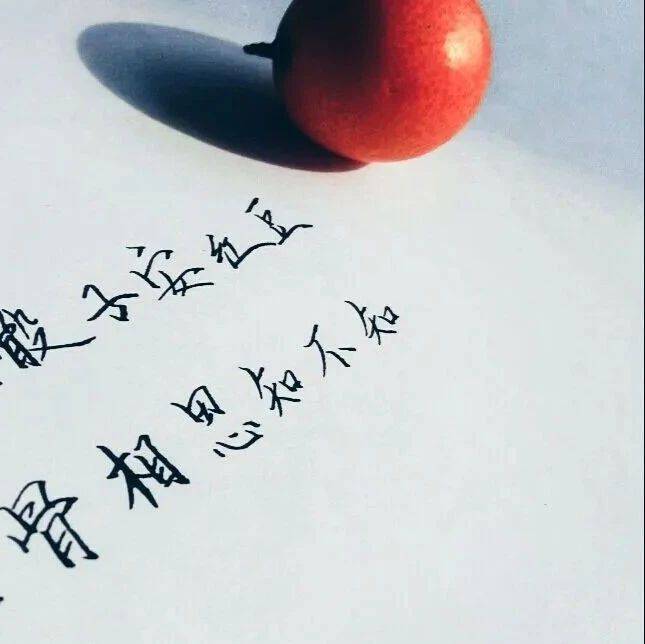 骰子安红豆
骨相思知不知